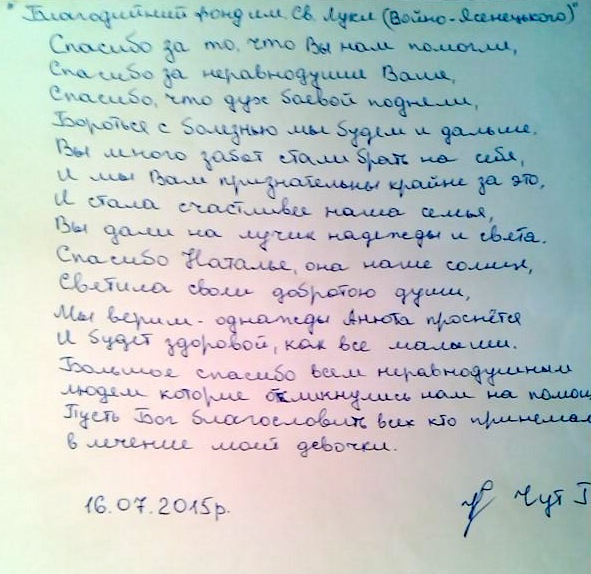 "Благодійний фонд им. Св. Луки (Войно-Ясенецького)"
Спасибо за то, что Вы нам помогли,
Спасибо за неравнодушие Ваше,
Спасибо, что дух боевой подняли,
Бороться с болезнью мы будем и дальше.
Вы много забот стали брать на себя,
И мы Вам признательны крайне за это,
И стала счастливее наша семья,
Вы дали на лучик надежды и света.
Спасибо Наталье, она наше солнце,
Светила своей добротою души,
Мы верим - однажды Анюта проснётся
И будет здоровой, как все малыши.
Большое спасибо всем неравнодушным
людем которие откликнулись нам на помощ
Пусть Бог благословить всех кто принемал
в лечение моей девочки.
16.07.2015р. Чут Г